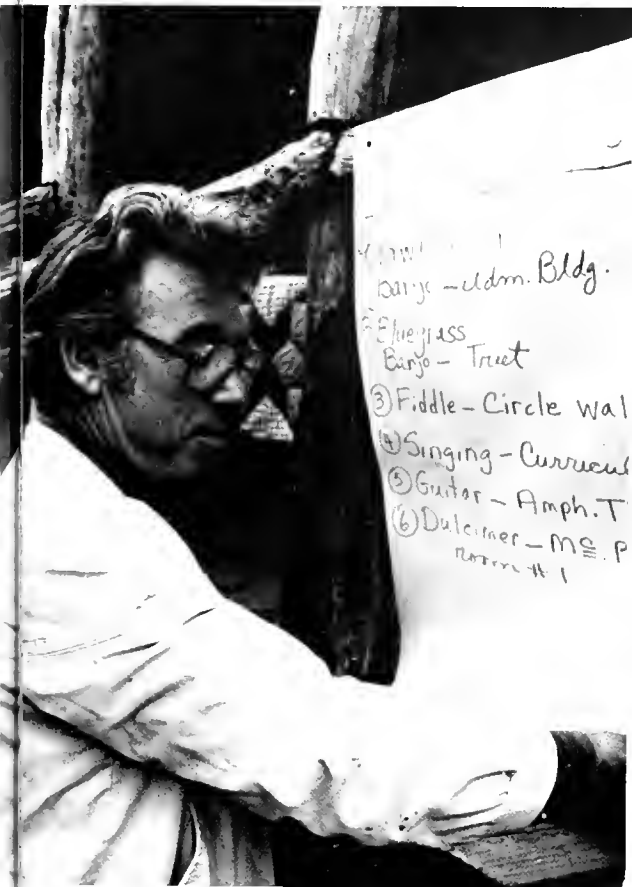 Banjo – Adm. Bldg.
Bluegrass
Banjo – Treet
③ Fiddle – Circle Wal
④ Singing – Curricul
⑤ Guitar – Amph. T
⑥ Dulcimer – Mc. P
Room # 1